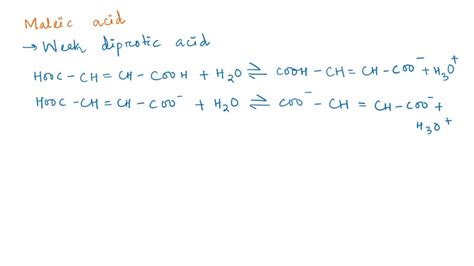 Maleic acid
→ Weak diprotic acid
HOOC-CH=CH-COOH + H2O ⇌ COOH-CH=CH-COO⁻ + H3O⁺
HOOC-CH=CH-COO⁻ + H2O ⇌ COO⁻-CH = CH-COO⁻ +
H3O⁺